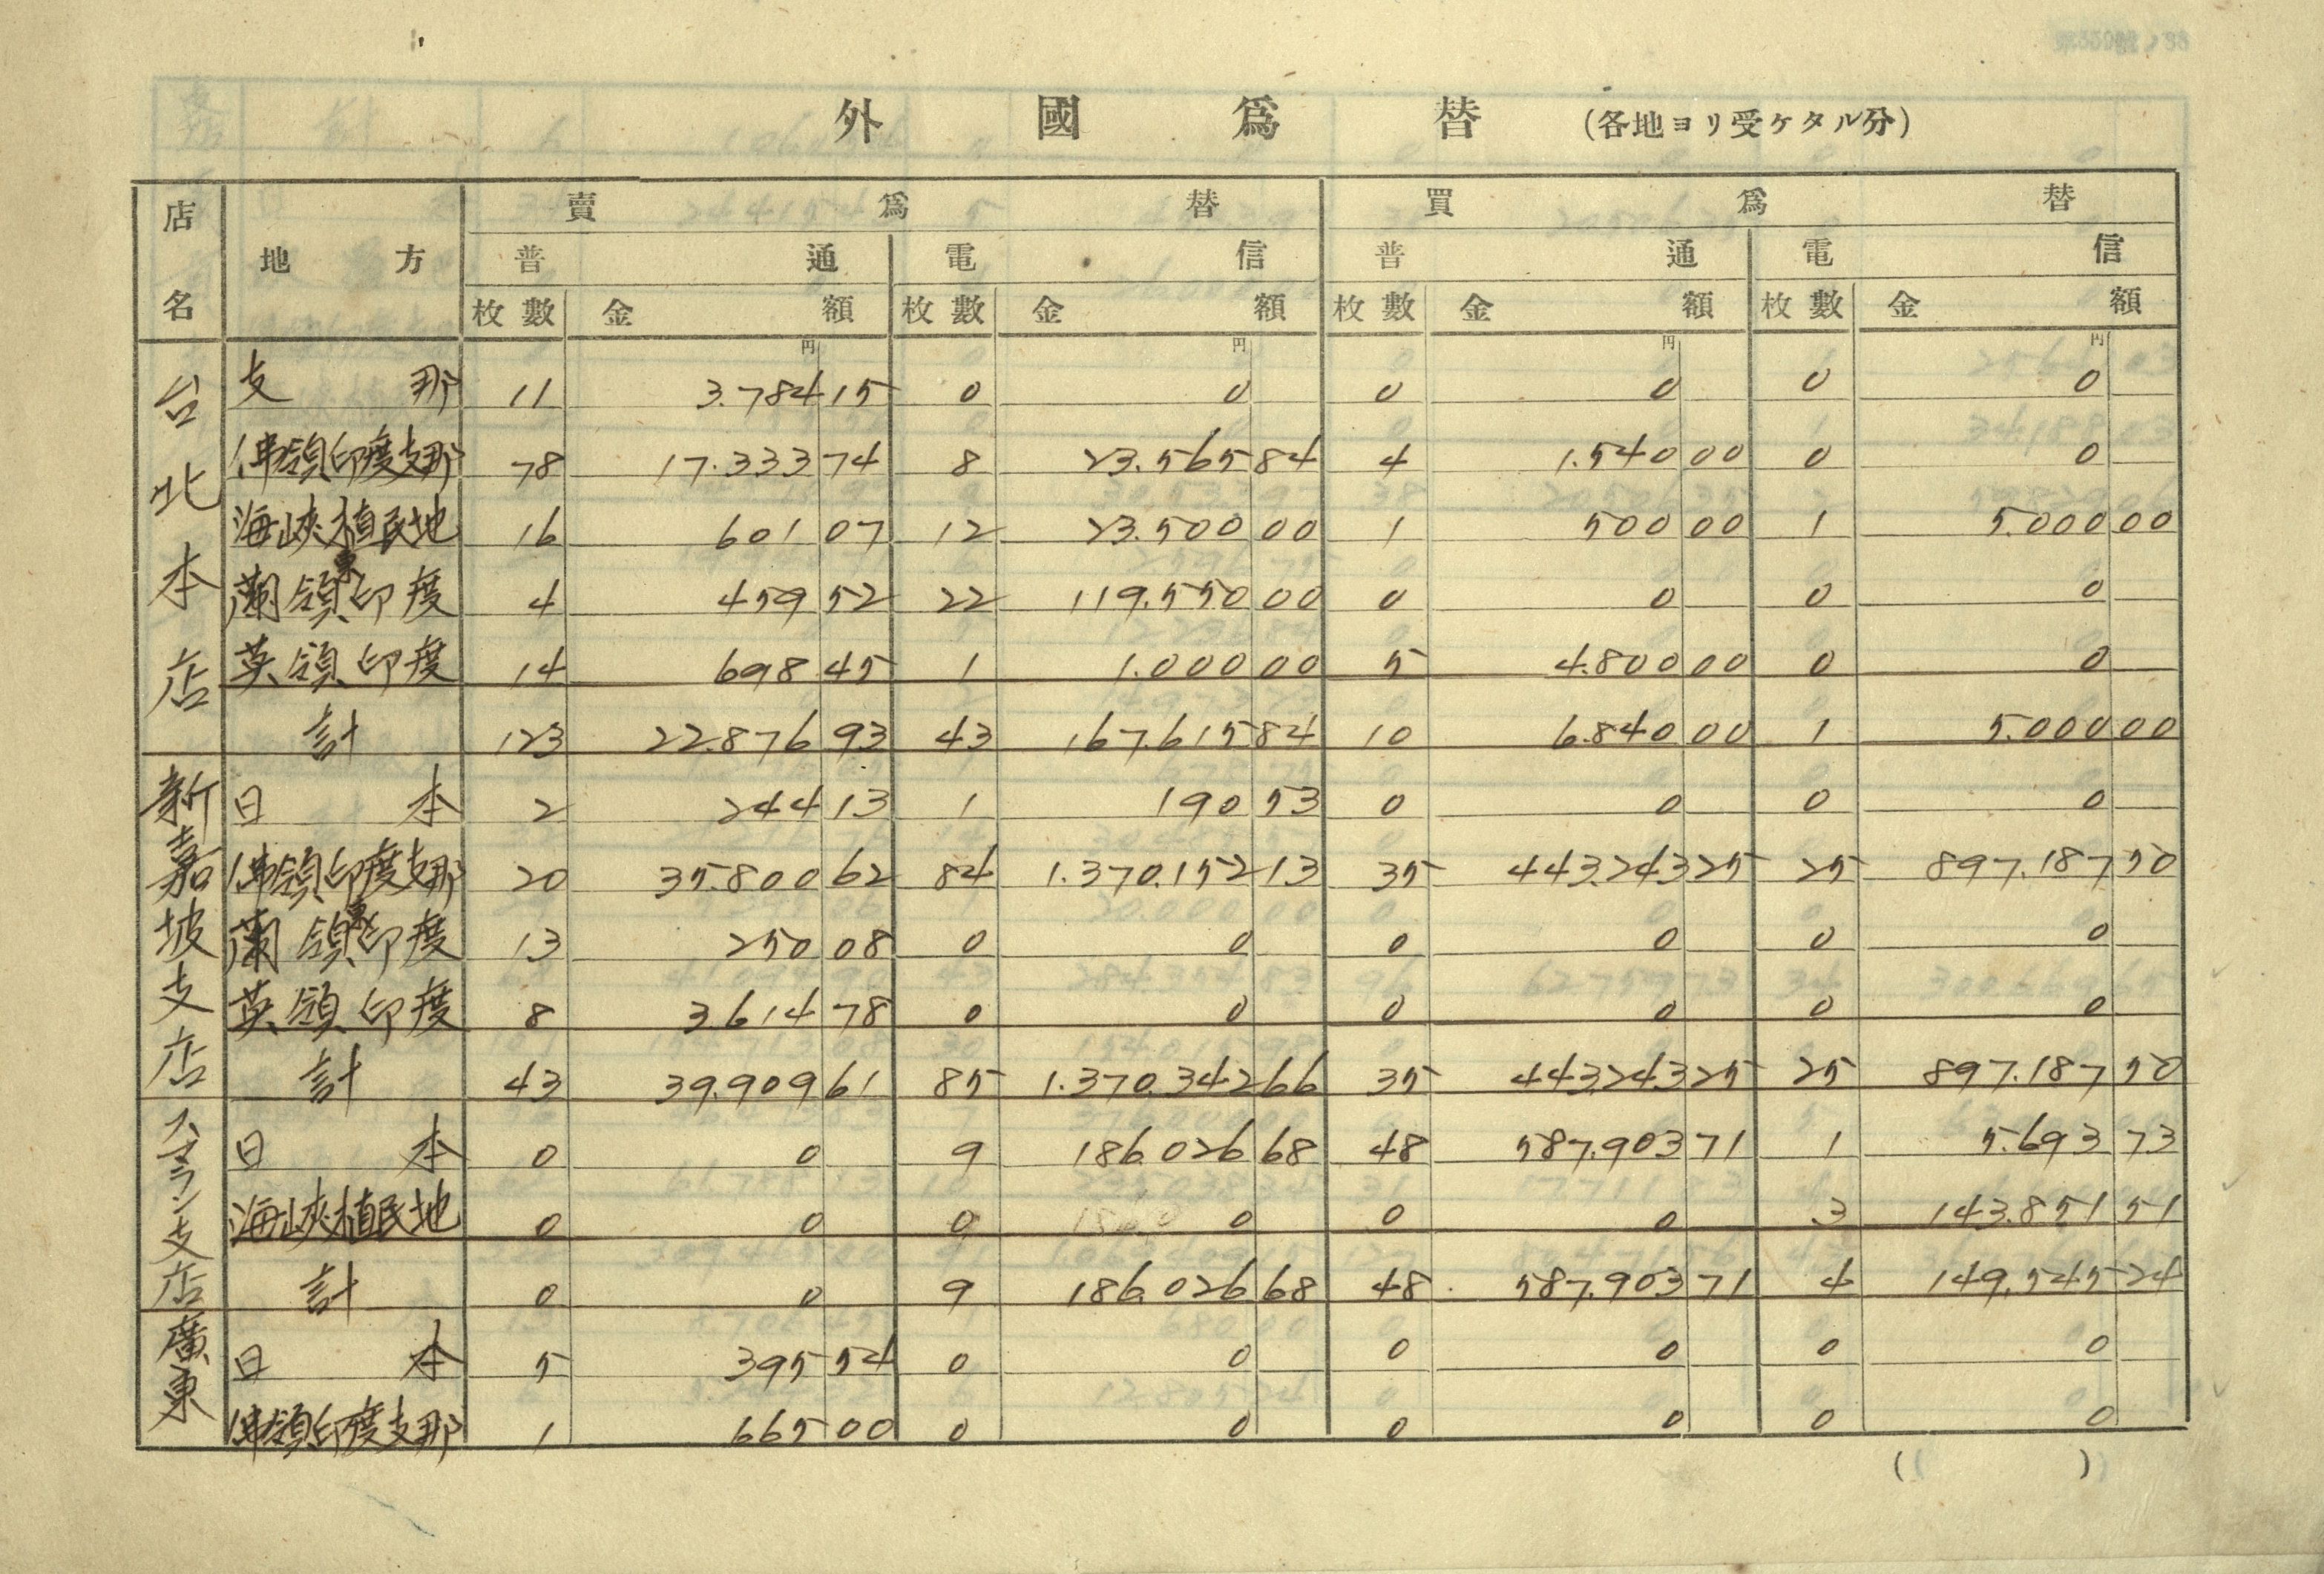 外國爲替 (各地ヨリ受ケタル分)
店名 地方 賣爲替 買爲替
普通 電信 普通 電信
枚數 金額 枚數 金額 枚數 金額 枚數 金額
円 円 円 円
台北本店
支那 11 3.784 15 0 0 0 0 0 0
佛領印度支那 78 17.333 74 8 23.565 84 4 1.540 00 0 0
海峽植民地 16 601 07 12 23.500 00 1 500 00 1 5.000 00
蘭領東印度 4 459 52 22 119.550 00 0 0 0 0
英領印度 14 698 45 1 1.000 00 5 4.800 00 0 0
計 123 22.876 93 43 167.615 84 10 6.840 00 1 5.000 00
新嘉坡支店
日本 2 244 13 1 190 53 0 0 0 0
佛領印度支那 20 35.800 62 84 1.370.152 13 35 443.243 25 25 897.187 50
蘭領東印度 13 250 08 0 0 0 0 0 0
英領印度 8 3614 78 0 0 0 0 0 0
計 43 39.909 61 85 1.370.342 66 35 443.243 25 25 897.187 50
スマラン支店
日本 0 0 9 186.026 68 48 587.903 71 1 5.693 73
海峽植民地 0 0 0 0 0 0 3 143.851 51
計 0 0 9 186.026 68 48 587.903 71 4 149.545 24
廣東
日本 5 395 54 0 0 0 0 0 0
佛領印度支那 1 665 00 0 0 0 0 0 0
( )